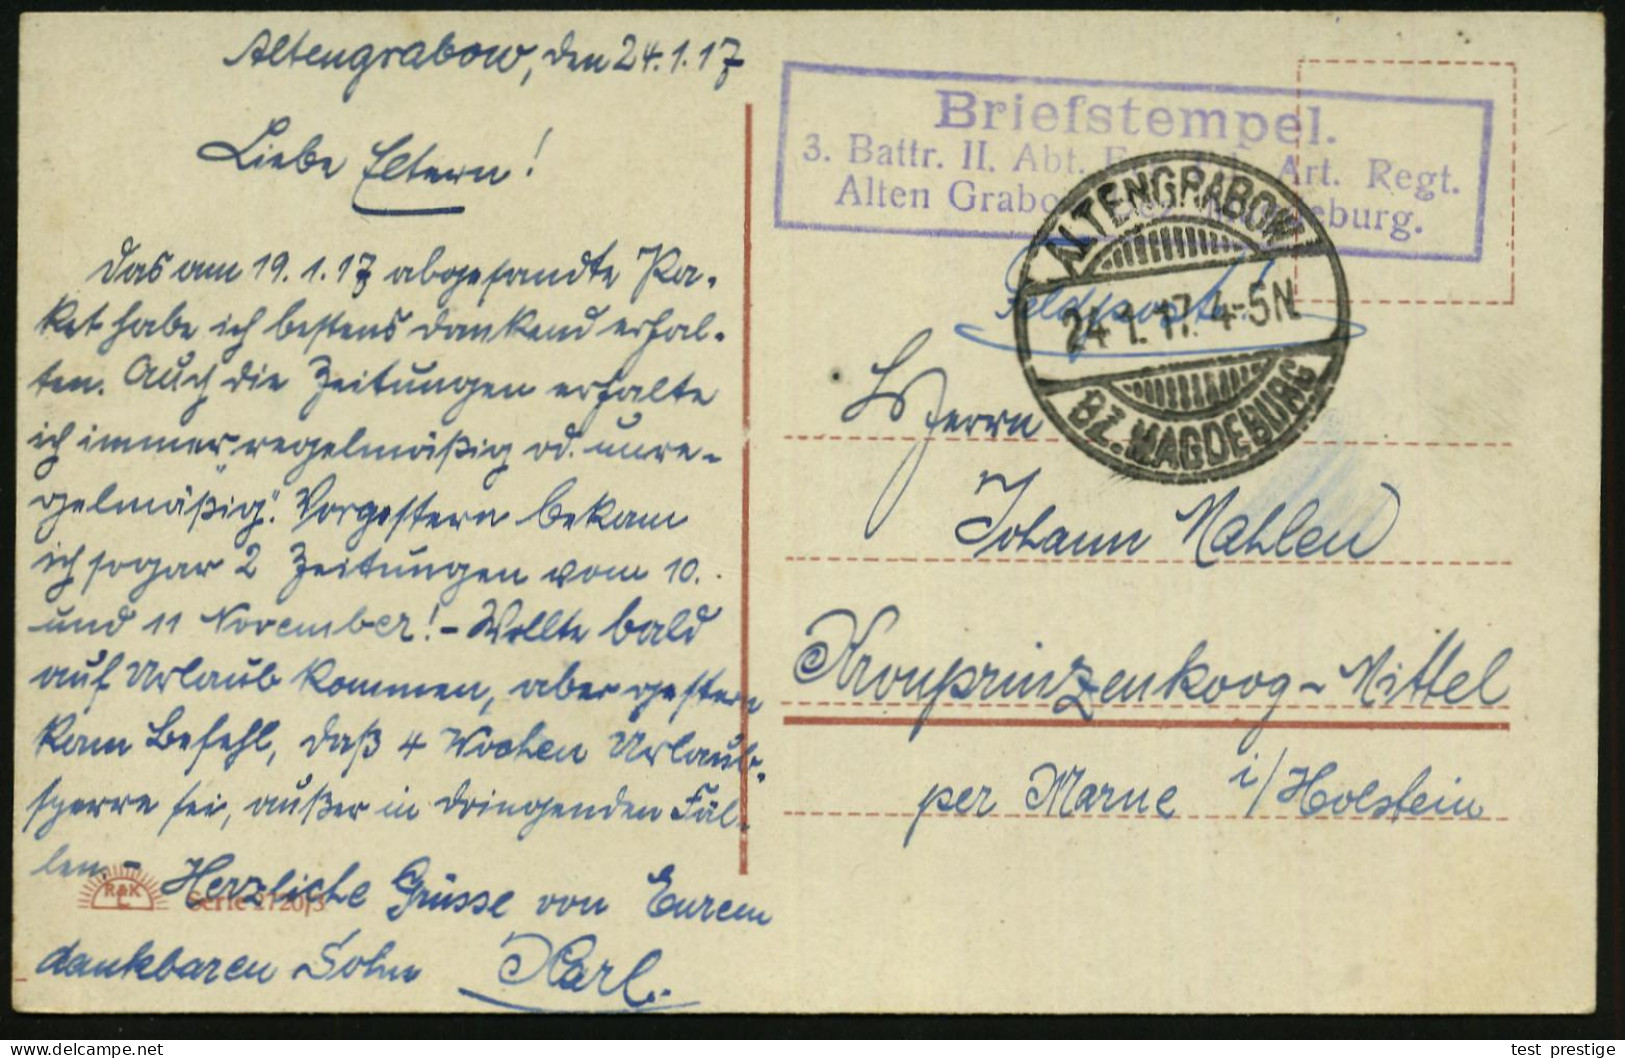 Altengrabow, den 24.1.17
Liebe Eltern!
Das am 19.1.17 abgesandte Pa-
ket habe ich bestens dankend erhal-
ten. Auch die Zeitungen erhalte
ich immer "regelmäßig od. unre-
gelmäßig". Vorgestern bekam
ich sogar 2 Zeitungen vom 10.
und 11 November! - Wollte bald
auf Urlaub kommen, aber gestern
kam Befehl, daß 4 Wochen Urlaub-
sperre sei, außer in dringenden Fäl-
len. - Herzliche Grüsse von Eurem
dankbaren Sohn Karl.
Serie 2720/3
Briefstempel.
3. Battr. II. Abt. Art. Regt.
Alten Grabow
ALTENGRABOW
24.1.17. 4-5N
BZ. MAGDEBURG
Feldpost!
Herrn
Johann Mahlen
Kronprinzenkoog - Mittel
per Marne i/Holstein
test prestige